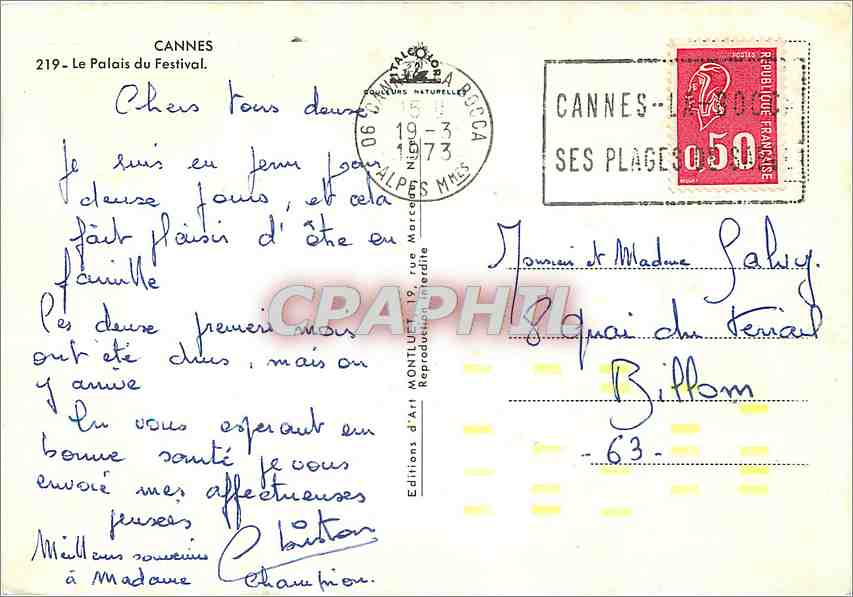 CANNES
219 - Le Palais du Festival.
Chers tous deux
Je suis en perm pour
deux jours, et cela
fait plaisir d'être en
famille
Les deux premiers mois
ont été durs, mais on
y arrive
En vous esperant en
bonne santé je vous
envoie mes affectueuses
pensées
Christian
Meilleurs souvenirs
à Madame Champion.
ITALCOLOR
COULEURS NATURELLES
06 CANNES LA BOCCA
19-3
1973
ALPES Mmes
Editions d'Art MONTLUET, 19, rue Marceau, Nice
Reproduction interdite
CANNES-LA-BOCCA
SES PLAGES DE SABLE
POSTES
REPUBLIQUE FRANÇAISE
0,50
BEQUET
Monsieur et Madame Salvy.
8 Quai du Terrail
Billom
- 63 -
CPAPHIL